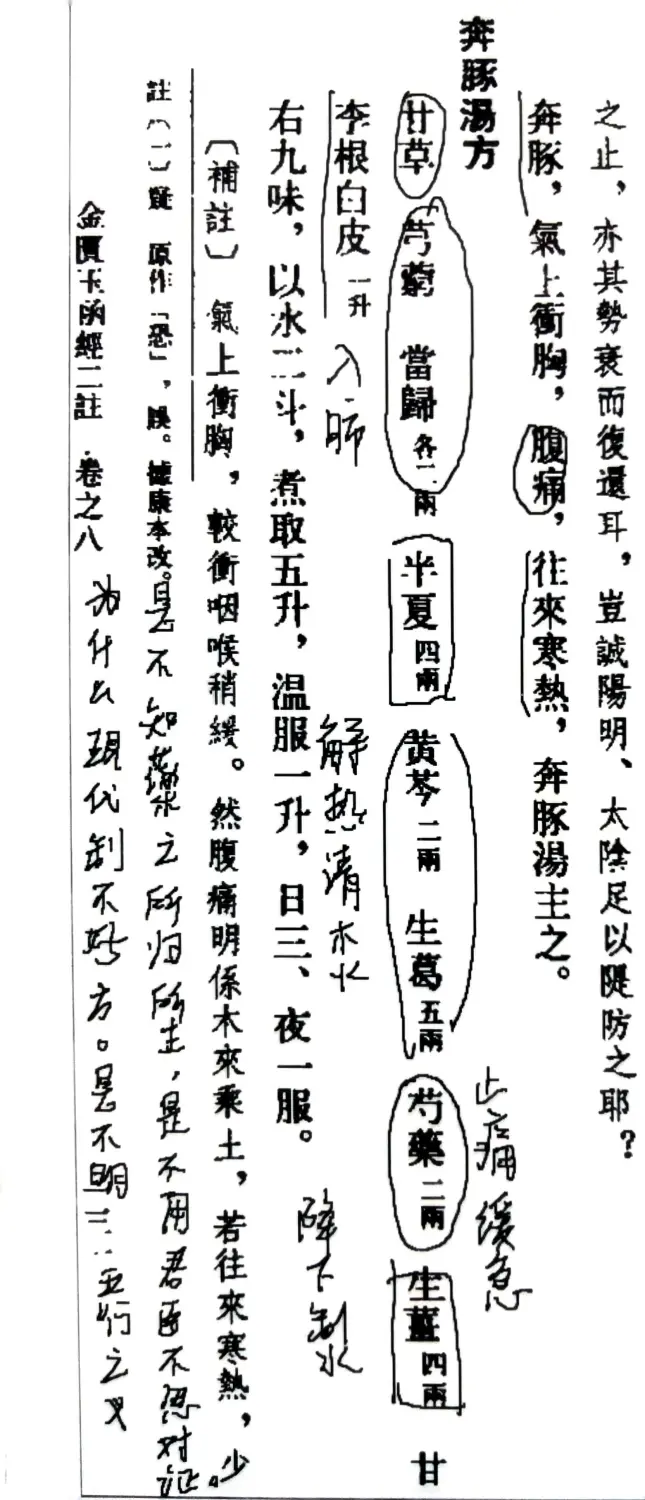 之止，亦其勢衰而復還耳，豈誠陽明、太陰足以隄防之耶？
奔豚，氣上衝胸，腹痛，往來寒熱，奔豚湯主之。
奔豚湯方
止痛缓急
甘草 芎藭 當歸各二兩 半夏四兩 黃芩二兩 生葛五兩 芍藥二兩 生薑四兩 甘
李根白皮一升
入
解热清木火
降下制水
右九味，以水二斗，煮取五升，温服一升，日三、夜一服。
〔補註〕 氣上衝胸，較衝咽喉稍緩。然腹痛明係木來乘土，若往來寒熱，少
註〔一〕疑 原作「恐」，誤。據康本改。
是不知药之所归所主，是不用君臣不思对证。
金匱玉函經二註·卷之八
为什么现代制不好方。是不明 五行之义